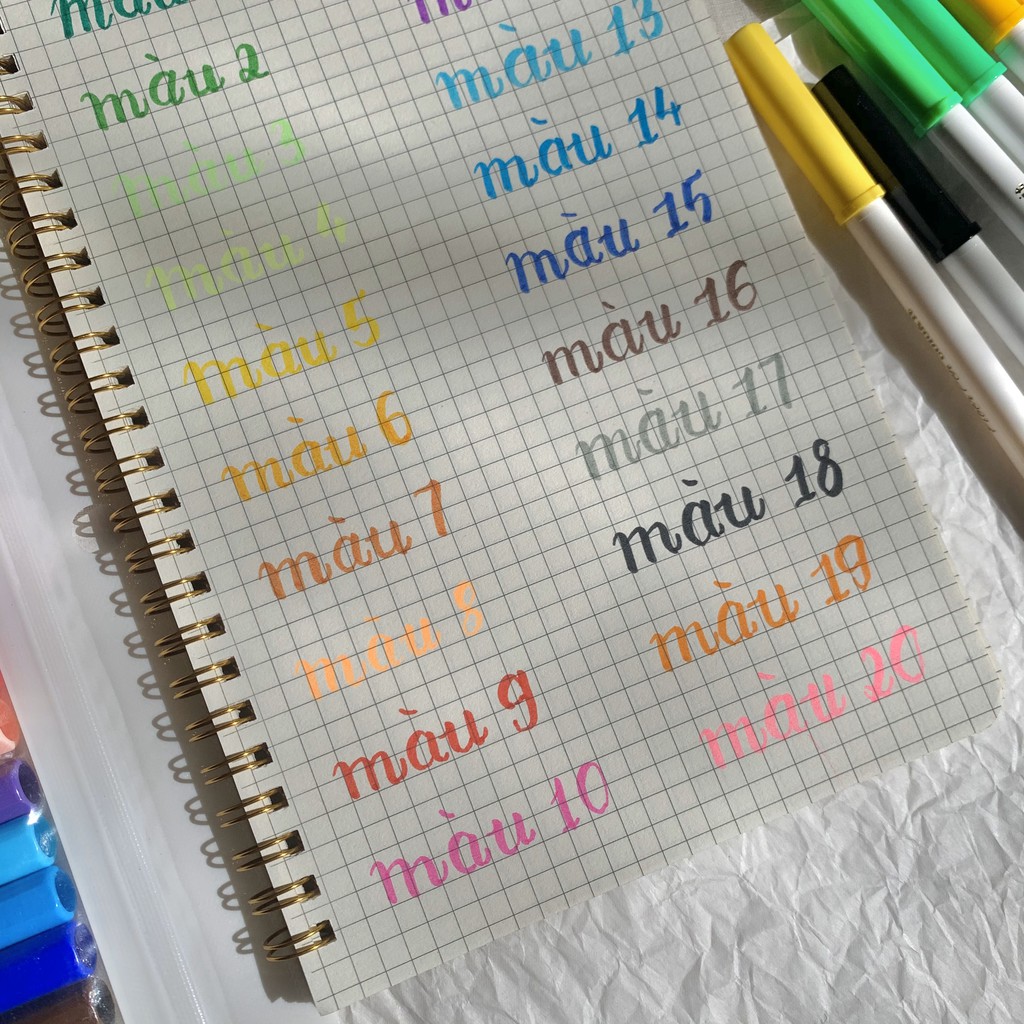 màu 2
màu 3
màu 4
màu 5
màu 6
màu 7
màu 8
màu 9
màu 10
màu 13
màu 14
màu 15
màu 16
màu 17
màu 18
màu 19
màu 20